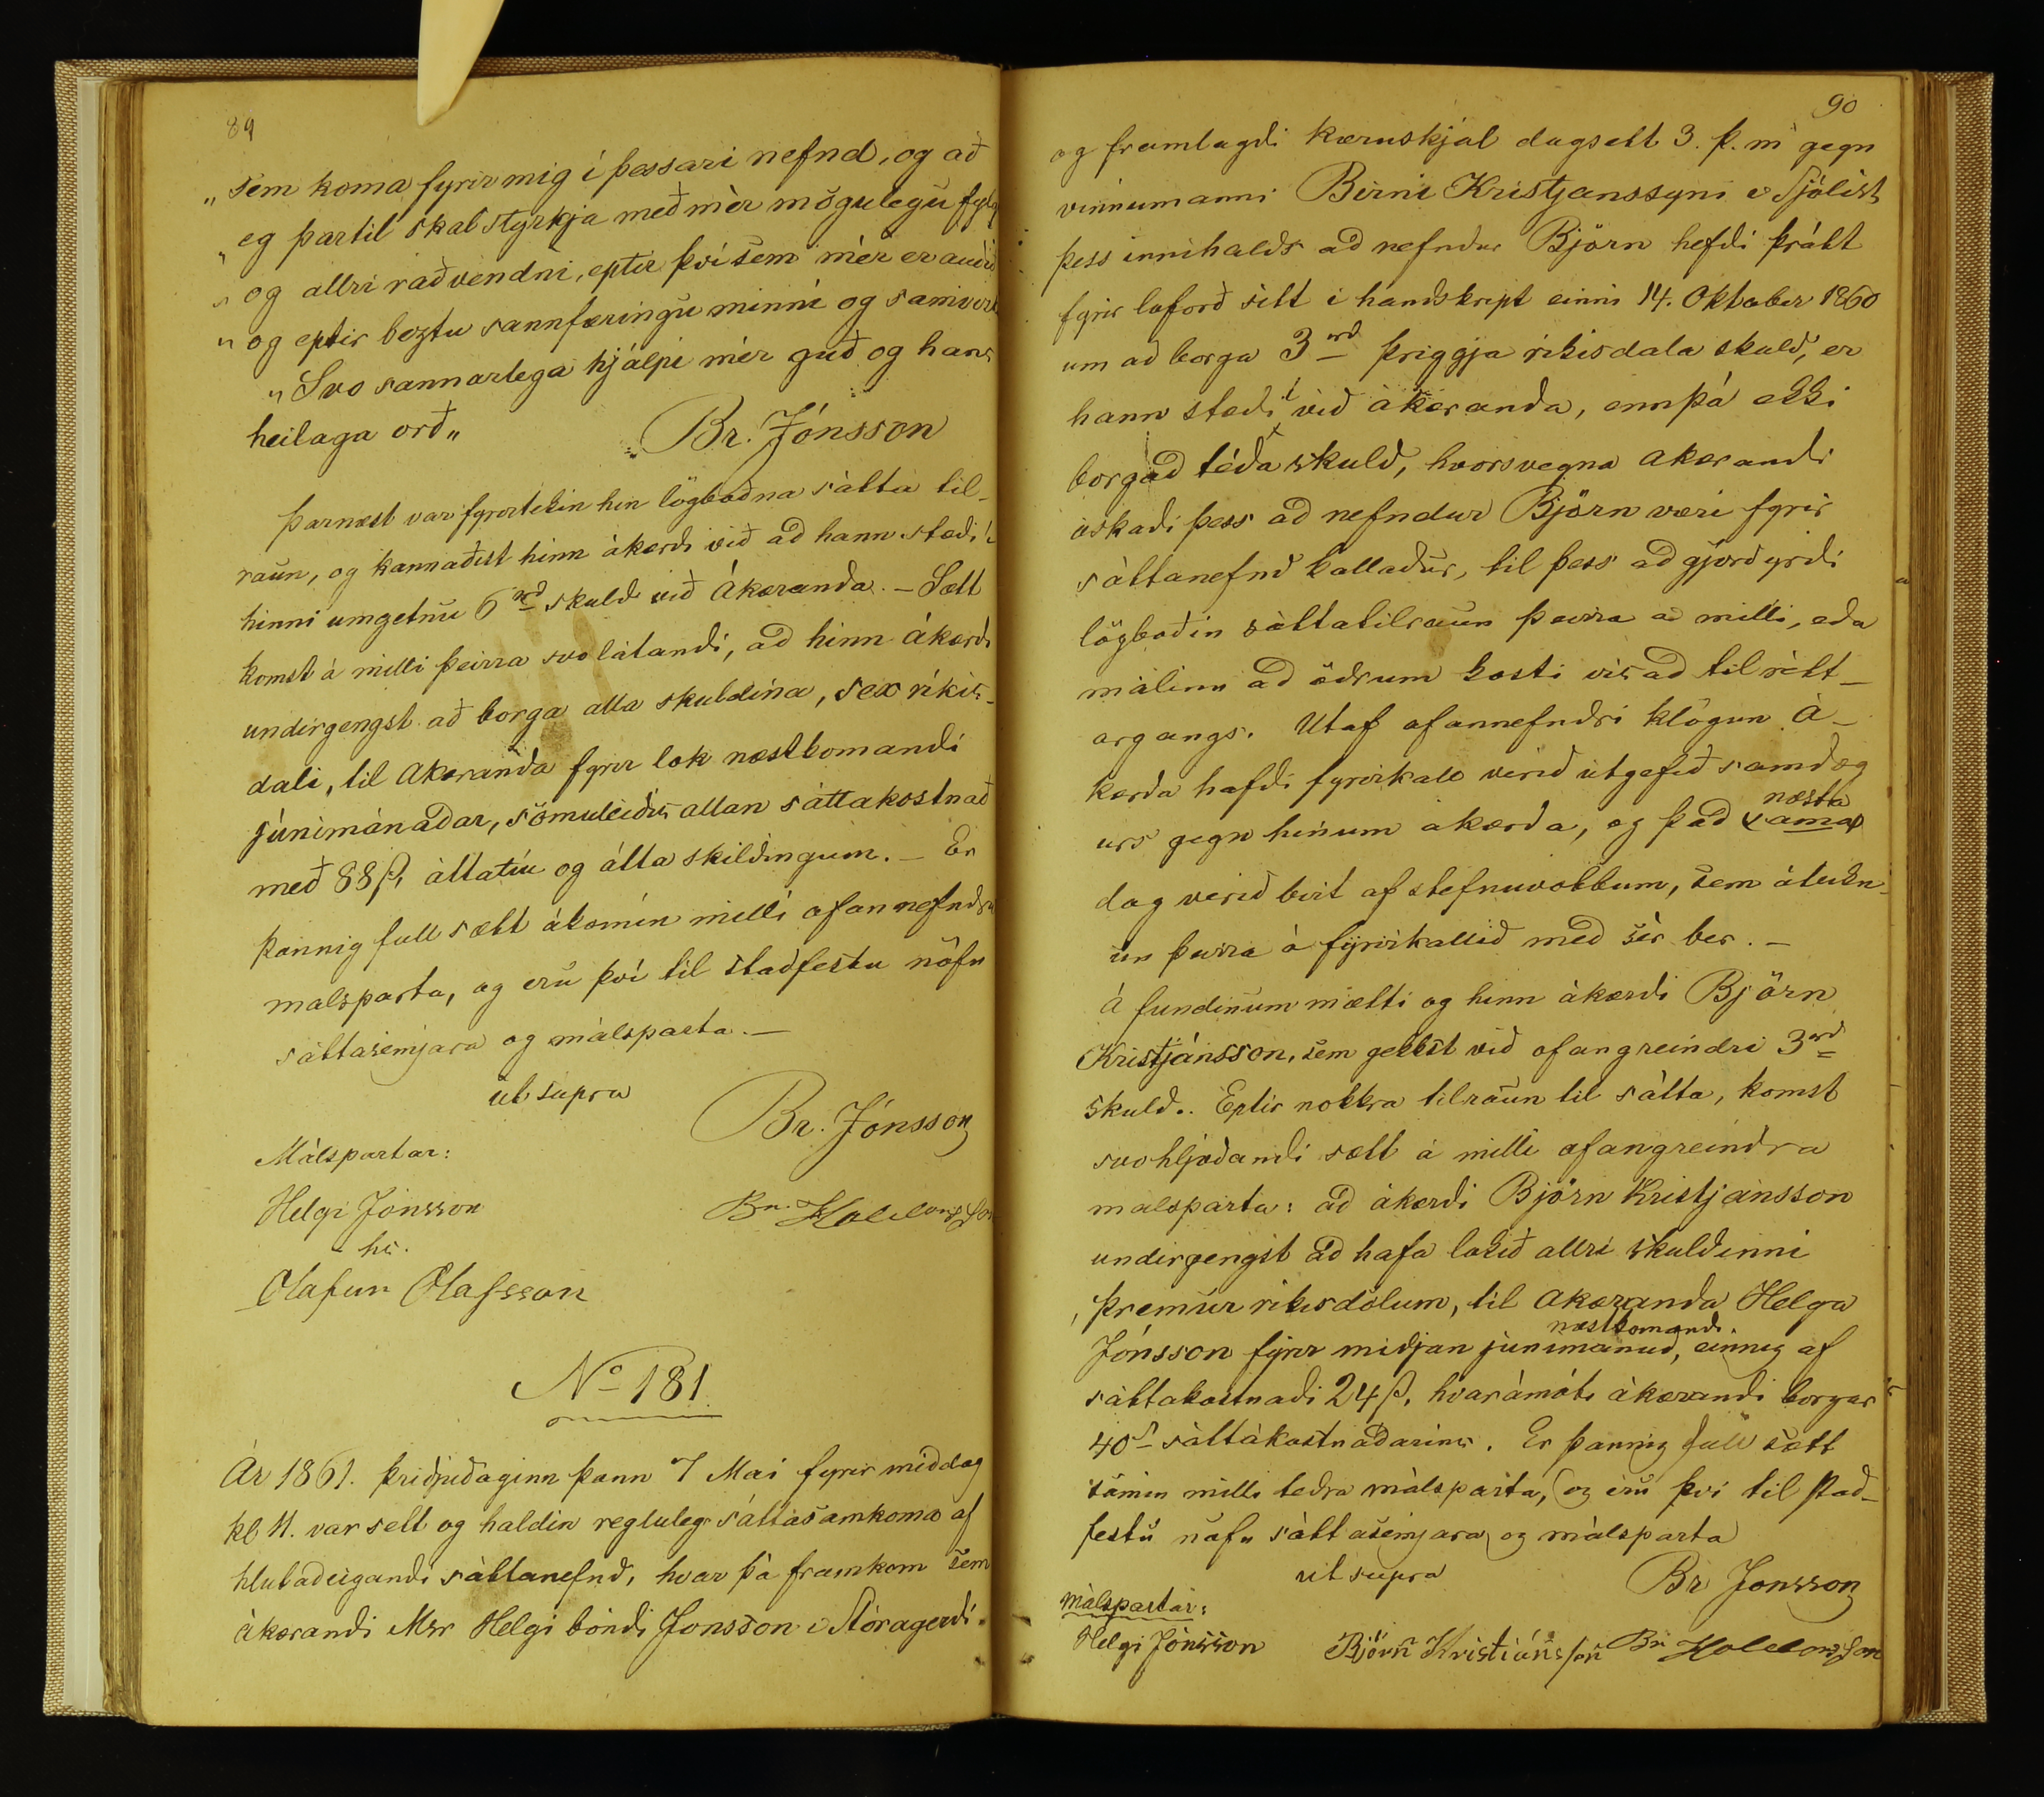 89
„ sem koma fyrir mig í þessari nefnd, og að
„ eg þartil skal styrkja með mèr mögulegu fylgi
„ og allri raðvendni, eptir því sem mèr er auðið
„ og eptir beztu sannfæringu minni og samvizk
„ Svo sannarlega hjálpi mér guð og hans
heilaga orð„
Br. Jónsson
Þarnæst var fyrirtekin hin lögboðna sátta til-
raun, og kannaðist hinn ákærdi við ad hann stædi í
hinni umgetnu 6 rd skuld við Ákæranda. - Sætt
komst á milli þeirra svo látandi, ad hinn ákærdi
undirgengst að borga alla skuldina, sex ríkis-
dali, til Akæranda fyrir lok næstkomandi
júnímánadar, sömuleiðis allan sáttakostnað
með 88 ß, áttatíu og átta skildingum. - Er
þannig full sætt ákomin milli ofannefndra
malsparta, og eru því til staðfestu nöfn
sáttasemjara og málsparta. -
ut supra
Br. Jónsson
Málspartar:
Helgi Jónsson
Bn. Halldorsson
hs.
Olafur Olafsson
No 181.
Ár 1861. þriðjudaginn þann 7 Mai fyrir middag
kl. 11. var sett og haldin regluleg sáttasamkoma af
hlutadeigandi sáttanefnd, hvar þá framkom sem
ákærandi Msr Helgi bóndi Jonsson á Stóragerdi
90
og framlagdi kæruskjal dagsett 3. þ. m gegn
vinnumanni Birni Kristjanssyni
þess innihalds ad nefndur Björn hefdi þrátt
fyrir loforð sitt i handskript einni 14. Oktober 1860
um að borga 3 rd þriggja rikisdala skuld, er
hann stædi í við ákæranda, ennþá ekki
borgad téda skuld, hvorsvegna akærandi
óskadi þess ad nefndur Björn væri fyrir
sáttanefnd kalladur, til þess ad gjörd yrdi
lögboðin sáttatilraun þeirra á milli, eda
málinu ad ödrum kosti vis ad til rètt-
argangs. Utaf ofannefndri klögun Á-
kærda hafdi fyrirkall verid útgefið samdæg
urs gegn hinum akærda, og þad næsta
(sama)
dag verið birt af stefnuvottum, sem áteikn-
un þeirra á fyrirkallid med sér ber. -
Á fundinum mætti og hinn ákærdi Björn
Kristjánsson, sem gekkst vid ofangreindri 3 rd
skuld. Eptir nokkra tilraun til sátta, komst
svohljódandi sætt á milli ofangreindra
malsparta: ad ákærdi Björn Kristjánsson
undirgengst ad hafa lokið allri skuldinni
þremur rikisdölum, til akæranda Helga
Jónsson fyrir midjan júnímánud næstkomandi, einnig af
sáttakostnaði 24 ß, hvarámóti ákærandi borgar
40 ß sáttakostnadarins. Er þannig full sætt
samin milli tedra málsparta, og eru því til stað-
festu nöfn sáttasemjara og málsparta
ut supra
Br Jonsson
Málspartar:
Helgi Jónsson Björn Kristiánsson Bn Halldorsson